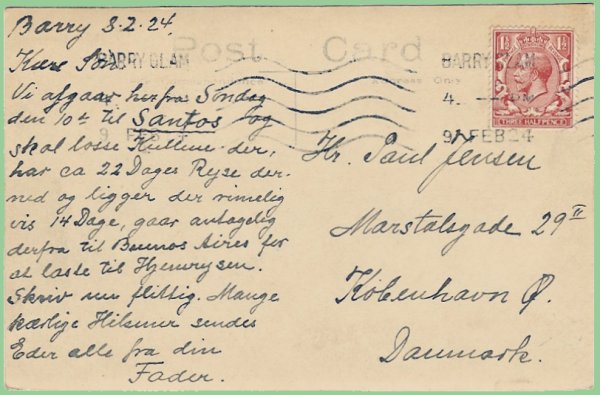 Barry 8.2.24.
Post Card
Kære
BARRY GLAM
BARRY GLAM
Vi afgaar herfra Søndag
den 10de til Santos og
skal losse Kullene der,
har ca 22 Dages Rejse der-
ned og ligger der rimelig
vis 14 Dage, gaar antagelig
derfra til Buenos Aires for
at laste til Hjemrejsen.
Skriv nu flittig. Mange
kærlige Hilsener sendes
Eder alle fra din
Fader.
4.
PM
9 FEB 24
9 FEB
THREE HALFPENCE
1½
1½
Hr. Paul Jensen
Marstalsgade 29 II
København Ø.
Danmark.